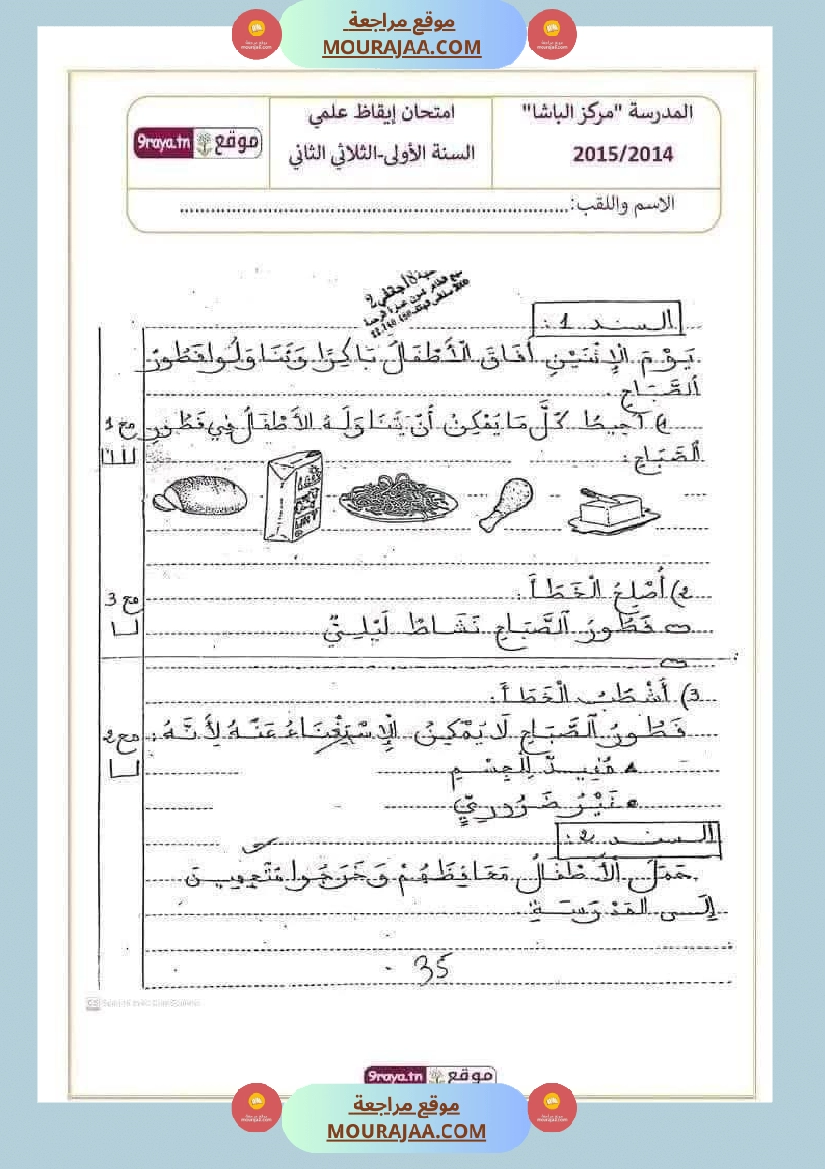 موقع مراجعة
MOURAJAA.COM
المدرسة "مركز الباشا"
2015/2014
امتحان إيقاظ علمي
السنة الأولى-الثلاثي الثاني
موقع 9raya.tn
الاسم واللقب:
السند 1:
يَوْمَ الْإِثْنَيْنِ أَفَاقَ الْأَطْفَالُ بَاكِرًا وَتَنَاوَلُوا فَطُورَ
الصَّبَاحِ.
1) أُحِيطُ كُلَّ مَا يُمْكِنُ أَنْ يَتَنَاوَلَهُ الْأَطْفَالُ فِي فَطُورِ
الصَّبَاحِ:
مع 1
2) أُصْلِحُ الْخَطَأَ:
مع 3
فَطُورُ الصَّبَاحِ نَشَاطٌ لَيْلِيٌّ
3) أَشْطُبُ الْخَطَأَ:
فَطُورُ الصَّبَاحِ لَا يُمْكِنُ الْإِسْتِغْنَاءُ عَنْهُ لِأَنَّهُ:
مع 2
مُفِيدٌ لِلْجِسْمِ
غَيْرُ ضَرُورِيٍّ
السند 2:
حَمَلَ الْأَطْفَالُ مَحَافِظَهُمْ وَخَرَجُوا مُتَّجِهِينَ
إِلَى الْمَدْرَسَةِ.
35
موقع 9raya.tn
موقع مراجعة
MOURAJAA.COM